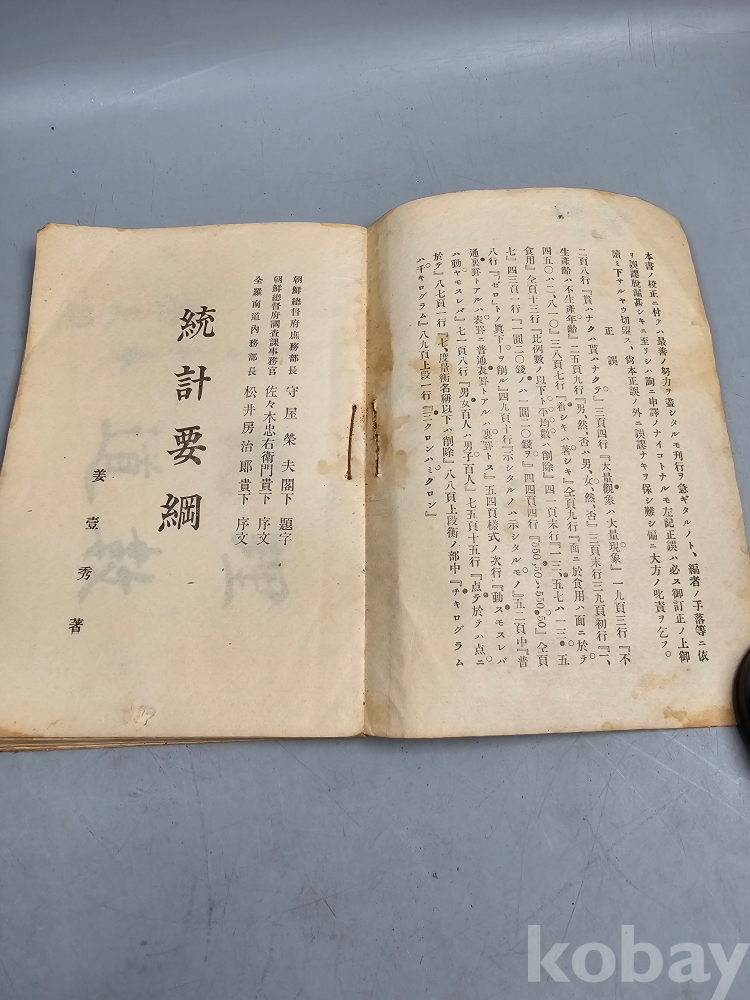 本書ノ校正ニ付テハ最善ノ努力ヲ盡シタルモ刊行ヲ急ギタルノト、編者ノ手落等ニ依
ヲ誤謬脫漏甚シキニ至リシハ洵ニ申譯ノナイコトナルモ左記正誤ハ必ス御訂正ノ上御
讀ミ下サルヤウ切望ス、尙本正誤ノ外ニ誤謬ナキヲ保シ難シ偏ニ大方ノ叱責ヲ乞フ。
正誤
二頁八行『貫ハナクハ貫ハナクテ』三頁四行『大量觀象ハ大量現象』一九頁三行『不
生產齡ハ不生產年齡』二五頁九行『男、然、否ハ男、女、然、否』三頁末行三九頁初行『二、
四五〇ハ二、八一〇』三八頁七行『着シキハ著シキ』全頁九行『面ニ於食用ハ面ニ於テ
食用』全頁十三行『比例數ノ以下ト平均數ハ削除』四一頁末行『一三、五七ハ一三、五
七』四三頁一行『一圓二〇錢ノハ一圓二〇錢ヲ』四四頁四行『550,50ハ550.50』全頁
八行『「ゼロ」トノ眞下ーヲ削ル』四九頁十行『示シタルノハ示シタルモノ』五二頁中『普
通裏罫トアルハ表罫ニ普通表罫トアルハ裏罫トス』五四頁樣式ノ次行『動スモスレバ
ハ動ヤモスレバ』七一頁八行『男女百人ハ男子百人』七五頁十五行『点ラ於テハ点ニ
於テ』八七頁一行『七、度量衡名稱以下ハ削除』八八頁上段衡ノ部中『チキログラム
ハ千キログラム』八九頁上段一行『ミクロンハミクロン』
朝鮮總督府庶務部長 守屋榮夫閣下 題字
朝鮮總督府調査課事務官 佐々木忠右衛門貴下 序文
全羅南道內務部長 松井房治郎貴下 序文
統計要綱
姜壹秀著
kobay